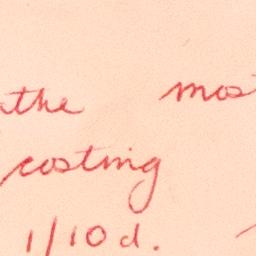 the mos
costing
1/10d.